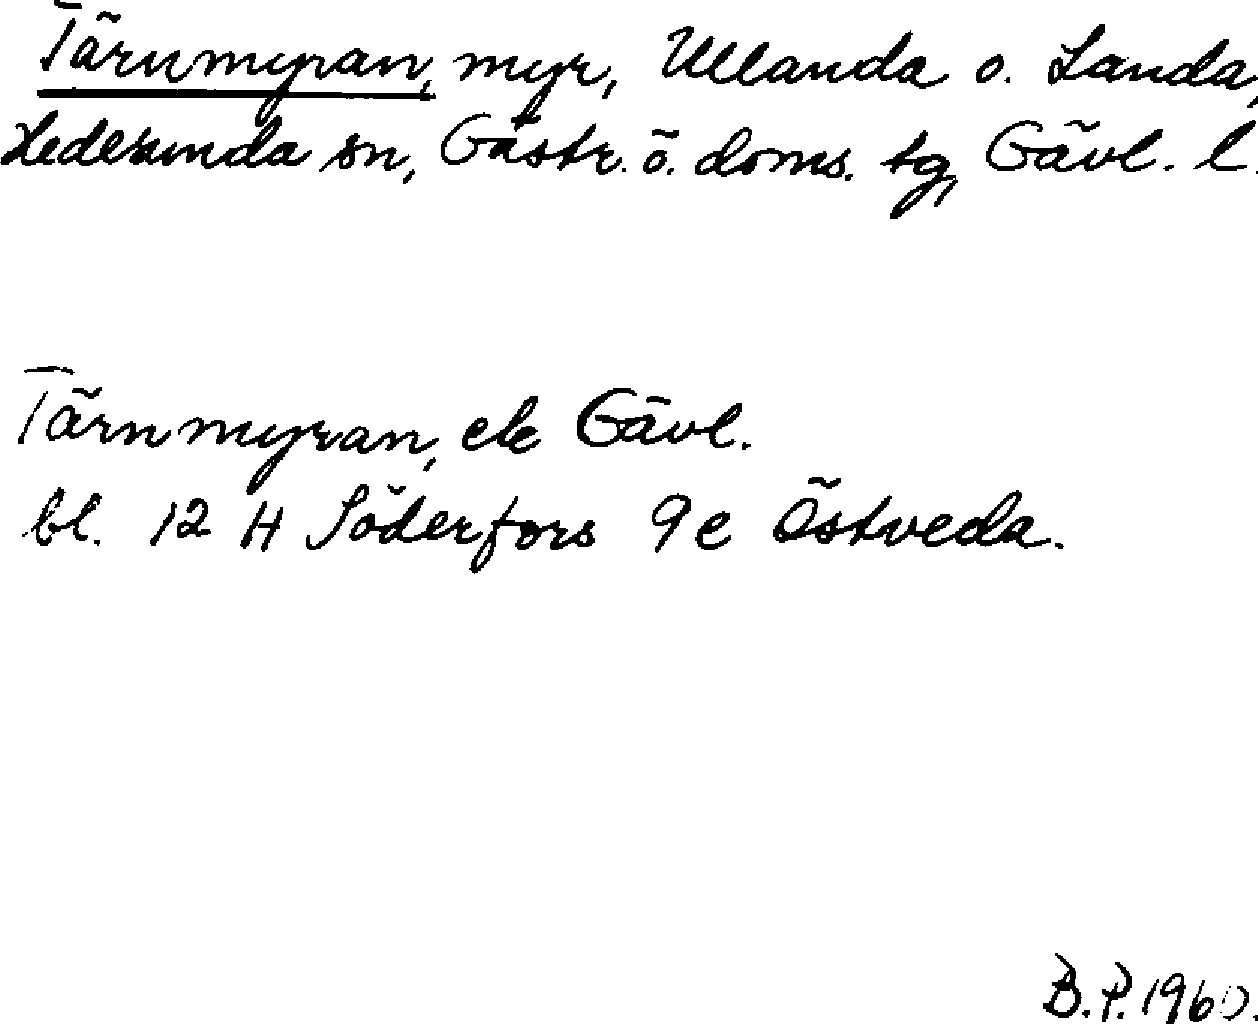 Tärnmyran, myr, Ullanda o. Landa,
Hedesunda sn, Gästr. ö. doms. tg, Gävl. l.
Tärnmyran, ek Gävl.
bl. 12 H Söderfors 9e Östveda.
B.P. 1960.